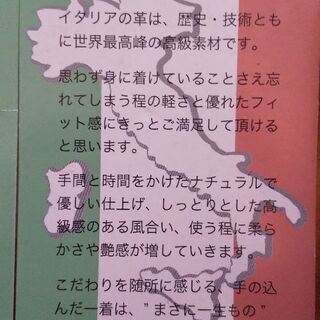 イタリアの革は、歴史・技術とも
に世界最高峰の高級素材です。
思わず身に着けていることさえ忘
れてしまう程の軽さと優れたフィ
ット感にきっとご満足して頂ける
と思います。
手間と時間をかけたナチュラルで
優しい仕上げ、しっとりとした高
級感のある風合い、使う程に柔ら
かさや艶感が増していきます。
こだわりを随所に感じる、手の込
んだ一着は、” まさに一生もの ”